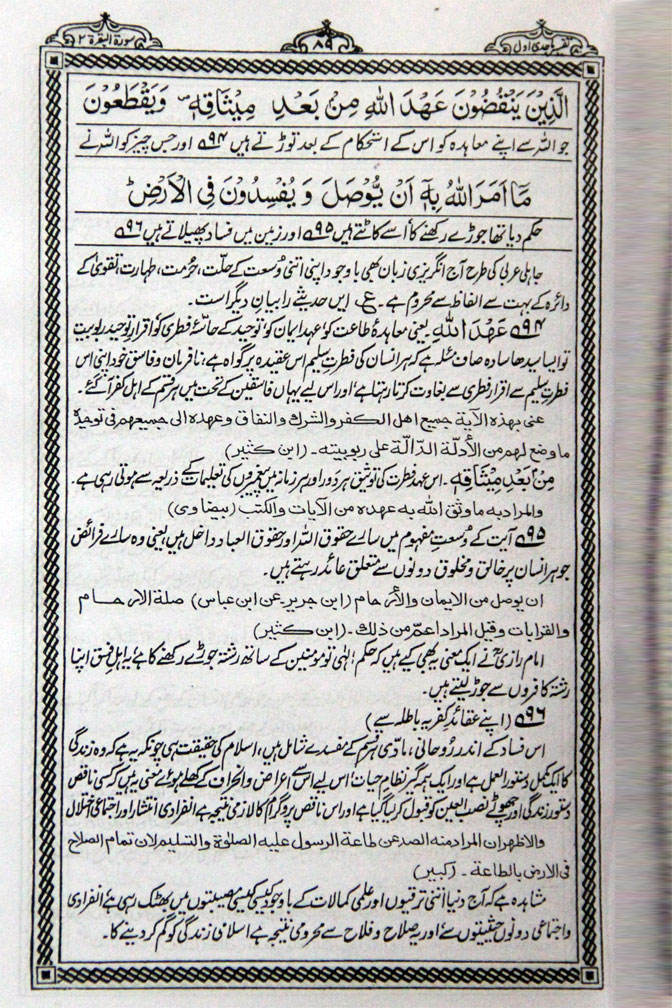 تفسیر ماجدی اول
۸۹
سورۃ البقرۃ ۲
الَّذِیْنَ یَنْقُضُوْنَ عَهْدَ اللّٰهِ مِنْۢ بَعْدِ مِیْثَاقِهٖ ۪ وَیَقْطَعُوْنَ
جو اللہ سے اپنے معاہدہ کو اس کے استحکام کے بعد توڑتے ہیں ۹۴ اور جس چیز کو اللہ نے
مَاۤ اَمَرَ اللّٰهُ بِهٖۤ اَنْ یُّوْصَلَ وَیُفْسِدُوْنَ فِی الْاَرْضِ ؕ
حکم دیا تھا جوڑے رکھنے کا اُسے کاٹتے ہیں ۹۵ اور زمین میں فساد پھیلاتے ہیں ۹۶
جاہلی عربی کی طرح آج انگریزی زبان بھی باوجود اپنی اتنی وُسعت کے حلّت، حرُمت، طہارت، تقویٰ کے
دائرہ کے بہت سے الفاظ سے محروم ہے۔ ع ایں حدیثے را بیانِ دیگر است۔
۹۴ عَهْدَ اللّٰهِ یعنی معاہدۂ طاعت کو، عہدِ ایمان کو، توحید کے حاسّۂ فطری کو، اقرارِ توحید ربوبیت
تو ایسا سیدھا سادہ صاف مسئلہ ہے کہ ہر انسان کی فطرتِ سلیم اس عقیدہ پر گواہ ہے، نافرمان وفاسق خود اپنی اس
فطرتِ سلیم سے اقرارِ فطری سے بغاوت کرتا رہتا ہے، اور اس لیے یہاں فاسقین کے تحت میں ہر قسم کے اہلِ کفر آگئے۔
عنی بهذه الآية جمیع اهل الکفر والشرك والنفاق وعهده الی جمیعهم فی توحیدہ
ما وضع لهم من الأدلّة الدّالّة علی ربوبیته۔ (ابن کثیر)
مِنْۢ بَعْدِ مِیْثَاقِهٖ۔ اس عہدِ فطرت کی توثیق ہر دَور اور ہر زمانہ میں پیغمبروں کی تعلیمات کے ذریعہ سے ہوتی رہی ہے۔
والمراد به ما وثق الله به عهده من الآیات والکتب (بیضاوی)
۹۵ آیت کے وُسعتِ مفہوم میں سارے حقوق اللہ اور حقوق العباد داخل ہیں، یعنی وہ سارے فرائض
جو ہر انسان پر خالق ومخلوق دونوں سے متعلق عائد رہتے ہیں۔
ان یوصل من الایمان والأرحام (ابن جریر۔ عن ابن عباس) صلة الارحام
والقرابات وقیل المراد اعمّ من ذلك۔ (ابن کثیر)
امام رازیؒ نے ایک معنی یہ بھی کیے ہیں کہ حکمِ الٰہی تو مومنین کے ساتھ رشتہ جوڑے رکھنے کا ہے، یہ اہلِ فسق اپنا
رشتہ کافروں سے جوڑ لیتے ہیں۔
۹۶ (اپنے عقائدِ کفریہ باطلہ سے)
اس فساد کے اندر رُوحانی، مادّی ہر قسم کے مفسدے شامل ہیں، اسلام کی حقیقت ہی چونکہ یہ ہے کہ وہ زندگی
کا ایک مکمل دستور العمل ہے اور ایک ہمہ گیر نظامِ حیات، اس لیے اس سے اعراض وانحراف کے کھلے ہوئے معنی یہ ہیں کہ کسی ناقص
دستورِ زندگی اور جھوٹے نصب العین کو قبول کرلیا گیا ہے اور اس ناقص پروگرام کا لازمی نتیجہ ہے انفرادی انتشار اور اجتماعی اختلال
والاظهر ان المراد منه الصد عن طاعة الرسول علیه الصلوٰة والتسلیم لان تمام الصلاح
فی الارض بالطاعة۔ (کبیر)
مشاہدہ ہے کہ آج دنیا اتنی ترقیوں اور علمی کمالات کے باوجود کیسی کیسی مصیبتوں میں بھٹک رہی ہے، انفرادی
واجتماعی دونوں حیثیتوں سے، اور یہ صلاح وفلاح سے محرومی نتیجہ ہے اسلامی زندگی کو گم کردینے کا۔